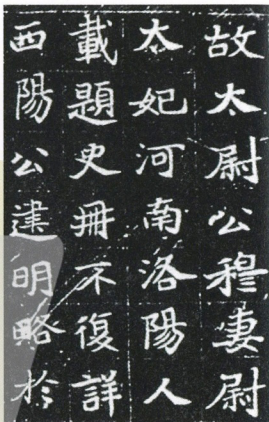 故太尉公穆妻尉
太妃河南洛陽人
載題史冊不復詳
西陽公建明略於